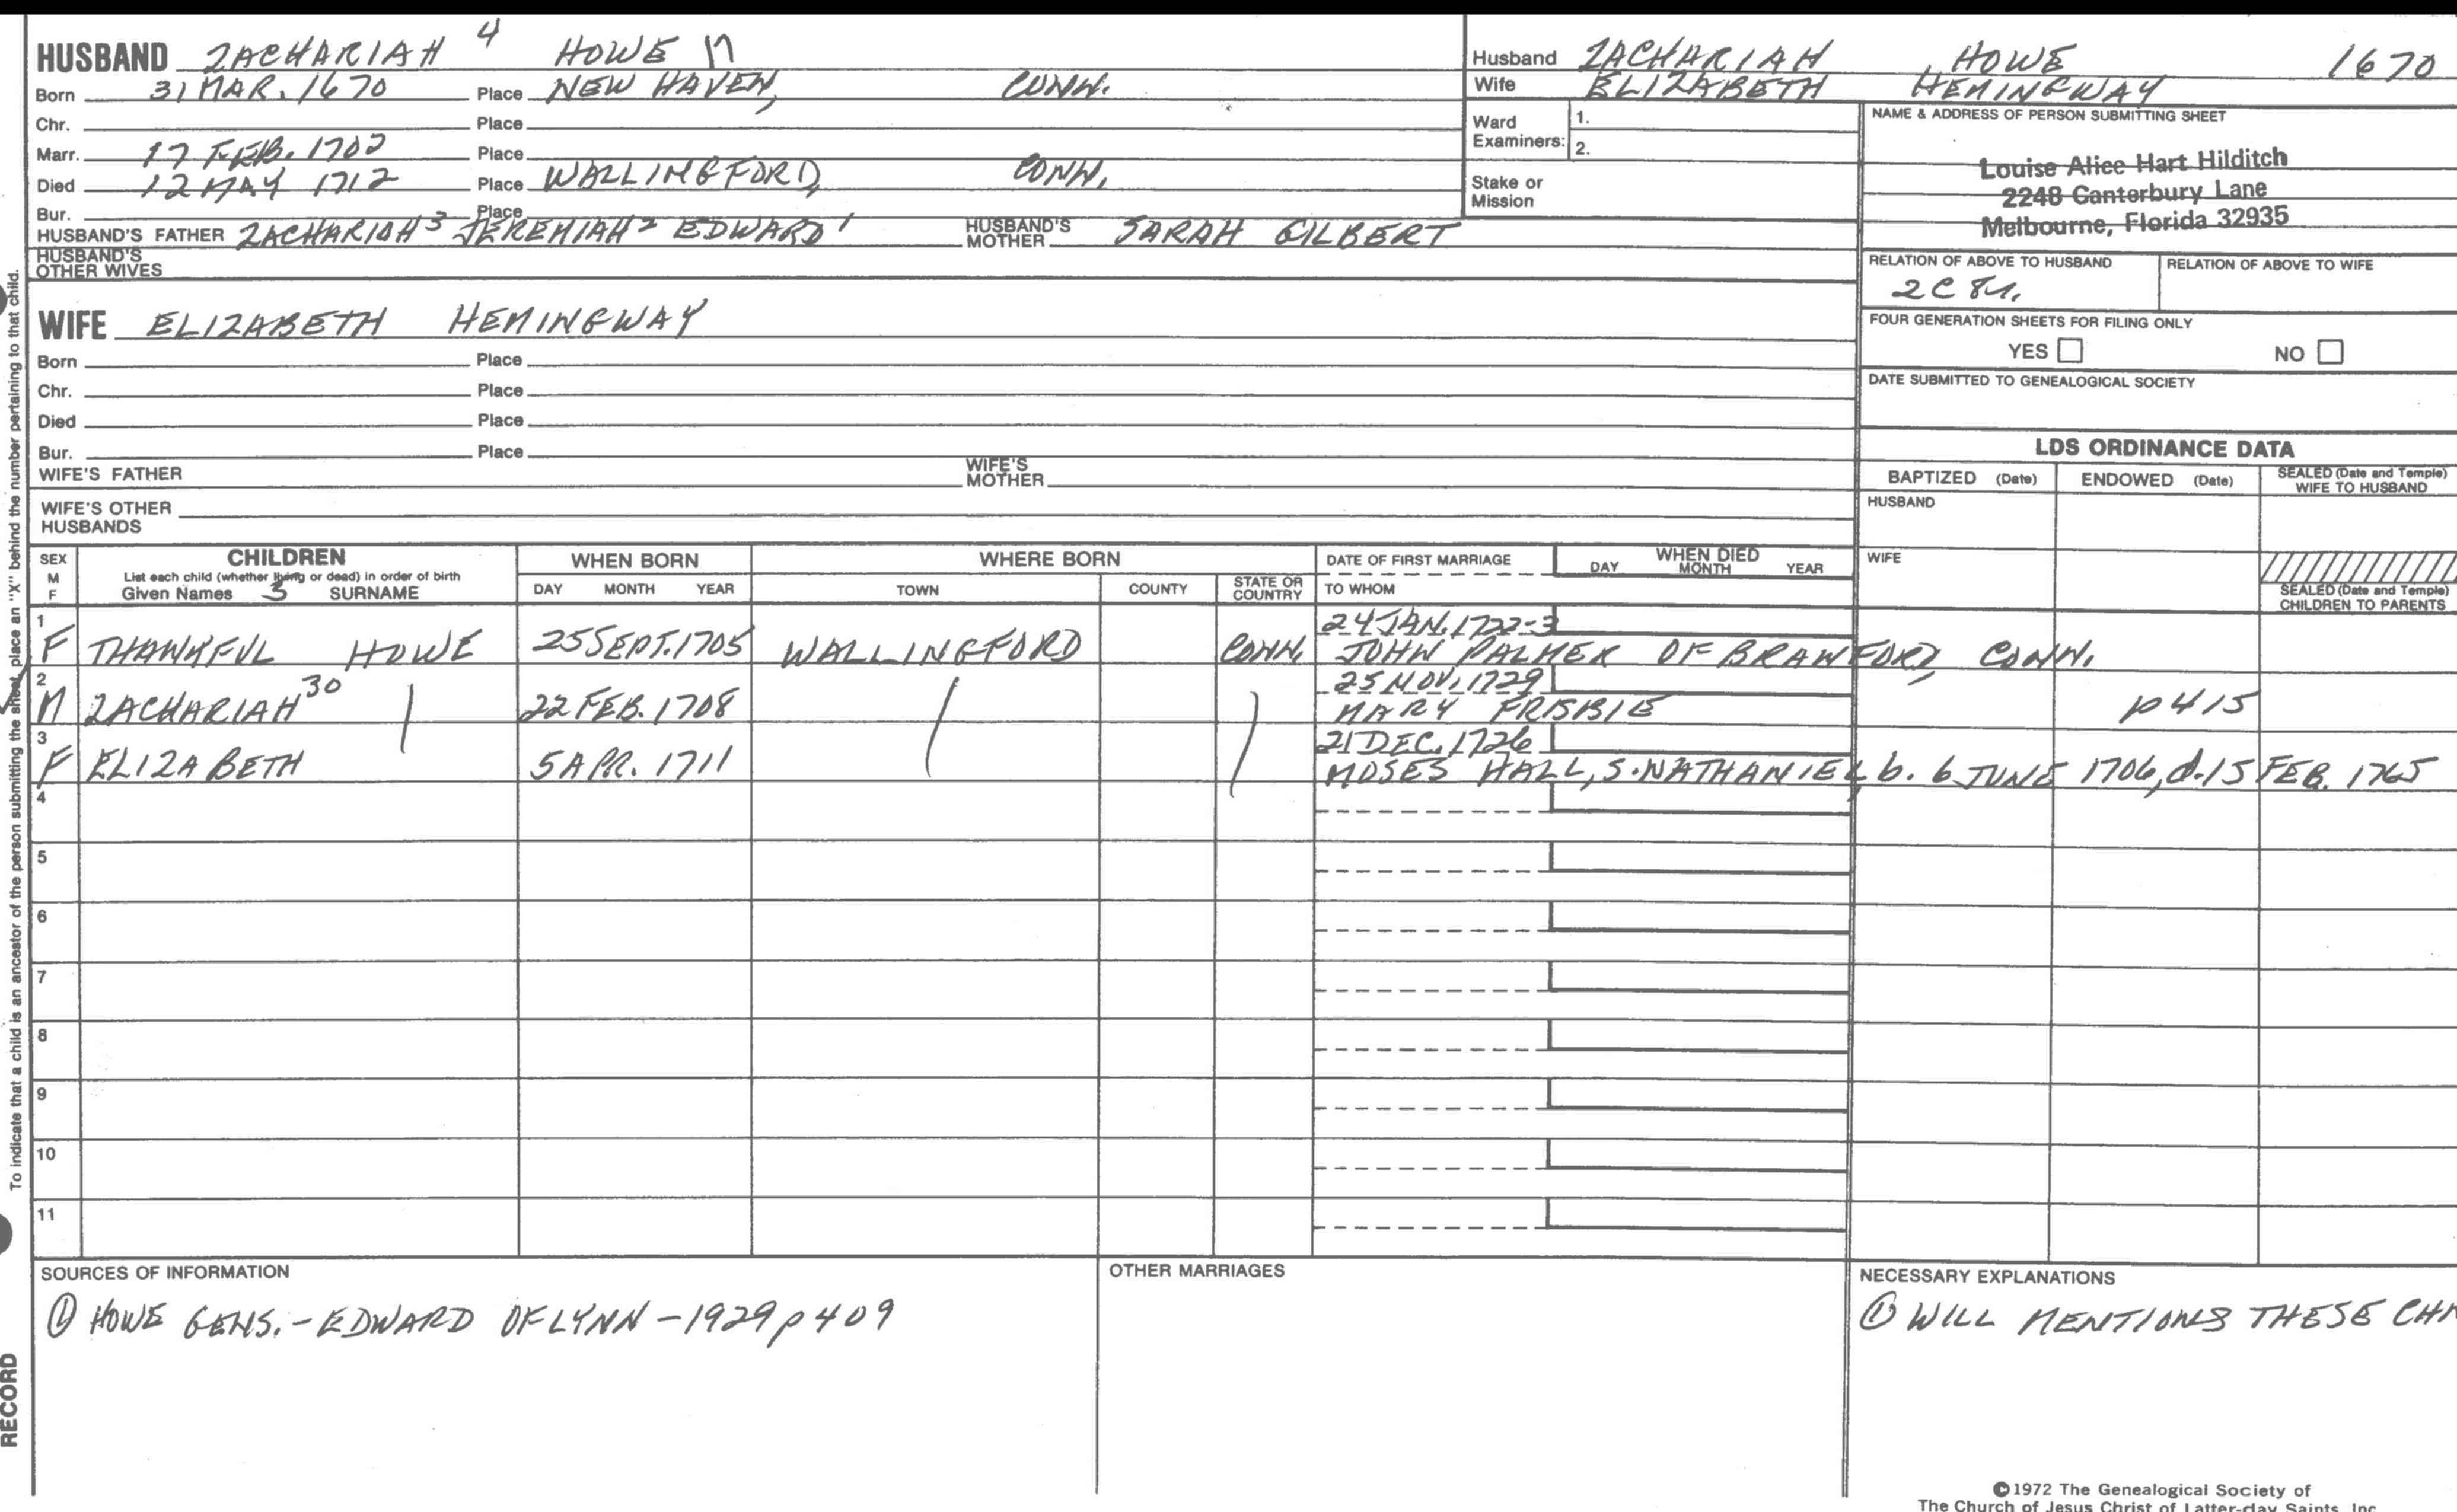 HUSBAND ZACHARIAH 4 HOWE 17
Born 31 MAR. 1670 Place NEW HAVEN, CONN.
Chr. Place
Marr. 17 FEB. 1702 Place
Died 12 MAY 1712 Place WALLINGFORD, CONN.
Bur. Place
HUSBAND'S FATHER ZACHARIAH 3 JEREMIAH 2 EDWARD 1 HUSBAND'S MOTHER SARAH GILBERT
HUSBAND'S OTHER WIVES
WIFE ELIZABETH HEMINGWAY
Born Place
Chr. Place
Died Place
Bur. Place
WIFE'S FATHER WIFE'S MOTHER
WIFE'S OTHER HUSBANDS
Husband ZACHARIAH HOWE 1670
Wife ELIZABETH HEMINGWAY
Ward Examiners: 1.
2.
Stake or Mission
NAME & ADDRESS OF PERSON SUBMITTING SHEET
Louise Alice Hart Hilditch
2248 Canterbury Lane
Melbourne, Florida 32935
RELATION OF ABOVE TO HUSBAND RELATION OF ABOVE TO WIFE
2C 8r.
FOUR GENERATION SHEETS FOR FILING ONLY
YES NO
DATE SUBMITTED TO GENEALOGICAL SOCIETY
LDS ORDINANCE DATA
BAPTIZED (Date) ENDOWED (Date) SEALED (Date and Temple) WIFE TO HUSBAND
HUSBAND
WIFE
SEALED (Date and Temple) CHILDREN TO PARENTS
SEX M F CHILDREN WHEN BORN WHERE BORN DATE OF FIRST MARRIAGE WHEN DIED
List each child (whether living or dead) in order of birth
Given Names 3 SURNAME DAY MONTH YEAR TOWN COUNTY STATE OR COUNTRY TO WHOM DAY MONTH YEAR
1 24 JAN. 1722-3
F THANKFUL HOWE 25 SEPT. 1705 WALLINGFORD CONN. JOHN PALMER OF BRANFORD, CONN.
2 25 NOV. 1729
M ZACHARIAH 30 22 FEB. 1708 MARY FRISBIE p 415
3 21 DEC. 1726
F ELIZABETH 5 APR. 1711 MOSES HALL, S. NATHANIEL, b. 6 JUNE 1706, d. 15 FEB. 1765
4
5
6
7
8
9
10
11
SOURCES OF INFORMATION
① HOWE GENS. - EDWARD OF LYNN - 1929 p 409
OTHER MARRIAGES
NECESSARY EXPLANATIONS
① WILL MENTIONS THESE CH
To indicate that a child is an ancestor of the person submitting the sheet, place an "X" behind the number pertaining to that child.
RECORD
©1972 The Genealogical Society of
The Church of Jesus Christ of Latter-day Saints, Inc.